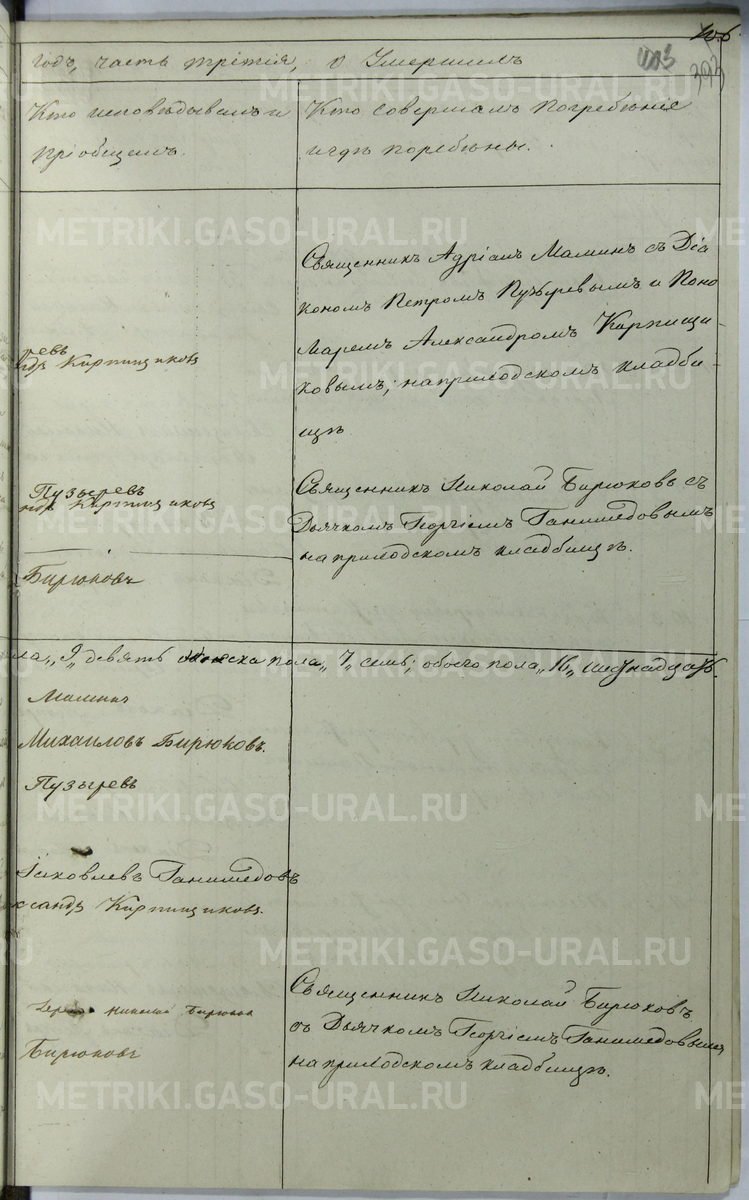 106.
годъ, часть третія, о Умершихъ
103
393
Кто исповѣдывалъ и
пріобщалъ.
Кто совершалъ погребѣніе
и гдѣ погребѣны.
Священникъ Адріанъ Маминъ съ Діа
кономъ Петромъ Пузыревымъ и Поно
маремъ Александромъ Кирпищи-
ковымъ; на приходскомъ кладби-
щѣ
ревъ
ндръ Кирпищиковъ
Пузыревъ
Кирпищиковъ
Бирюковъ
Священникъ Николай Бирюковъ съ
Дьячкомъ Георгіемъ Ганимедовымъ
на приходскомъ кладбищѣ.
ла „9„ девять женска пола „7„ семь; обоего пола „16„ шеснадцать.
Маминъ
Михаиловъ Бирюковъ.
Пузыревъ
Яковлевъ Ганимедовъ
ксандръ Кирпищиковъ.
Николай Бирюковъ
Бирюковъ
Священникъ Николай Бирюковъ
съ Дьячкомъ Георгіемъ Ганимедовымъ
на приходскомъ кладбищѣ.
METRIKI.GASO-URAL.RU